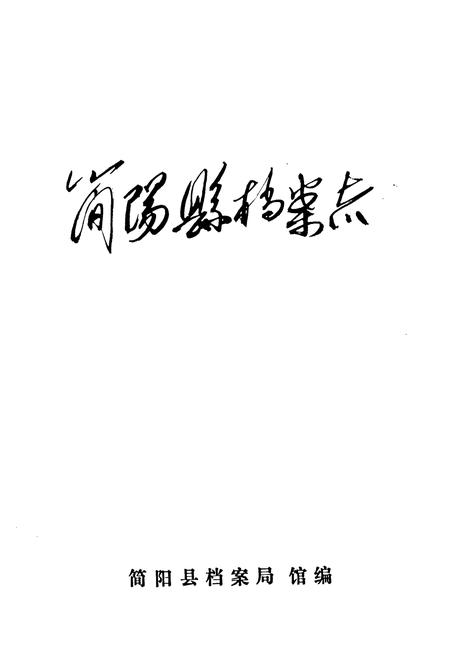 简陽縣档案志
简阳县档案局 馆编